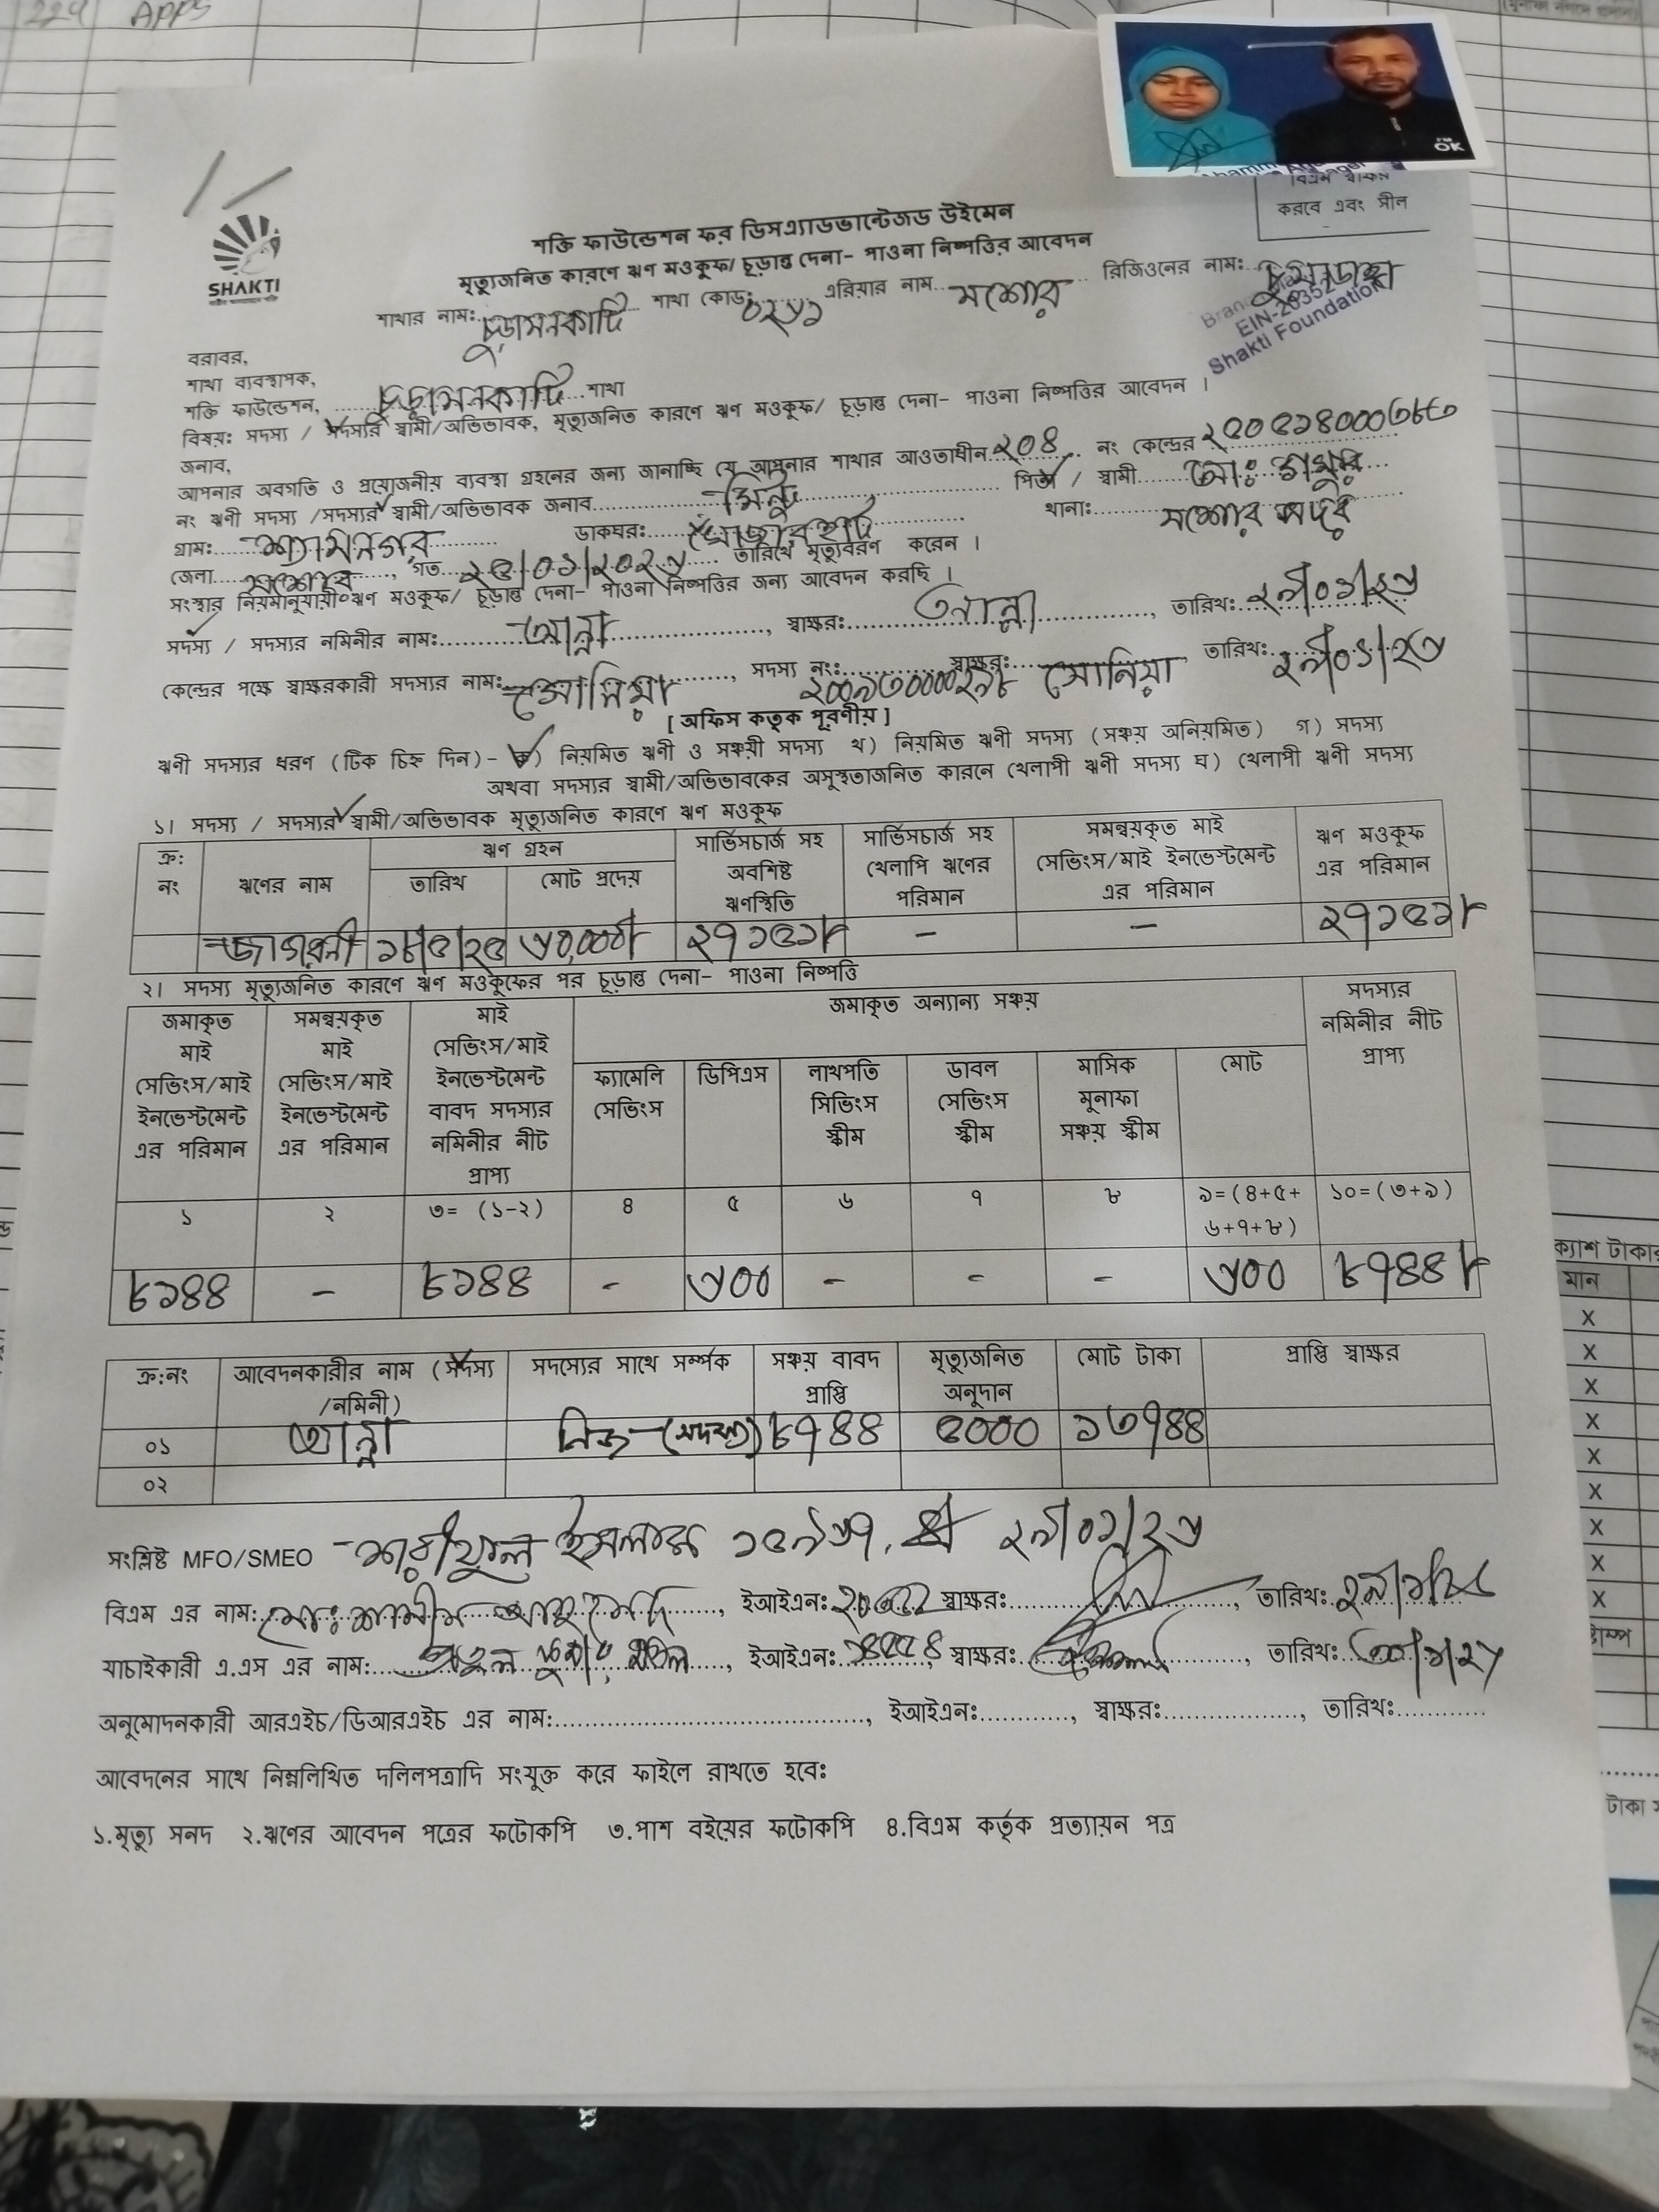 229 APPS
OK
বিএম স্বাক্ষর
করবে এবং সীল
SHAKTI
শক্তি ফাউন্ডেশন ফর ডিসএ্যাডভান্টেজড উইমেন
মৃত্যুজনিত কারণে ঋণ মওকুফ/ চূড়ান্ত দেনা- পাওনা নিষ্পত্তির আবেদন
শাখার নাম: চুড়ামনকাটি শাখা কোড: ০২৬১ এরিয়ার নাম.. যশোর রিজিওনের নাম: চুয়াডাঙ্গা
EIN-20352
Shakti Foundation
বরাবর,
শাখা ব্যবস্থাপক,
শক্তি ফাউন্ডেশন, ...... চুড়ামনকাটি ...শাখা
বিষয়: সদস্য / সদস্যর স্বামী/অভিভাবক, মৃত্যুজনিত কারণে ঋণ মওকুফ/ চূড়ান্ত দেনা- পাওনা নিষ্পত্তির আবেদন ।
জনাব,
আপনার অবগতি ও প্রয়োজনীয় ব্যবস্থা গ্রহনের জন্য জানাচ্ছি যে আপনার শাখার আওতাধীন ২০৪ নং কেন্দ্রের
নং ঋণী সদস্য /সদস্যর স্বামী/অভিভাবক জনাব...... মিন্টু ...... পিতা / স্বামী...... মোঃ গফুর
গ্রাম:...... শ্যামনগর ...... ডাকঘর:...... থানা:...... যশোর সদর
জেলা.... যশোর ...., গত ২৫/০১/২০২৬ তারিখে মৃত্যুবরণ করেন ।
সংস্থার নিয়মানুযায়ী ঋণ মওকুফ/ চূড়ান্ত দেনা- পাওনা নিষ্পত্তির জন্য আবেদন করছি ।
সদস্য / সদস্যর নমিনীর নাম:...... আন্না ......, স্বাক্ষর:...... আন্না ......, তারিখ: ২৯/০১/২৬
কেন্দ্রের পক্ষে স্বাক্ষরকারী সদস্যর নাম: সোনিয়া ......, সদস্য নং: স্বাক্ষর: সোনিয়া তারিখ: ২৯/০১/২৬
[ অফিস কতৃক পূরণীয় ]
ঋণী সদস্যর ধরণ (টিক চিহ্ন দিন)- ক) নিয়মিত ঋণী ও সঞ্চয়ী সদস্য খ) নিয়মিত ঋণী সদস্য (সঞ্চয় অনিয়মিত) গ) সদস্য
অথবা সদস্যর স্বামী/অভিভাবকের অসুস্থতাজনিত কারনে খেলাপী ঋণী সদস্য ঘ) খেলাপী ঋণী সদস্য
১। সদস্য / সদস্যর স্বামী/অভিভাবক মৃত্যুজনিত কারণে ঋণ মওকুফ
ক্র: নং ঋণের নাম ঋণ গ্রহন তারিখ মোট প্রদেয় সার্ভিসচার্জ সহ অবশিষ্ট ঋণস্থিতি সার্ভিসচার্জ সহ খেলাপি ঋণের পরিমান সমন্বয়কৃত মাই সেভিংস/মাই ইনভেস্টমেন্ট এর পরিমান ঋণ মওকুফ এর পরিমান
জাগরনী ১৮/৫/২৫ ৬০,০০০/- ২৭১৫১/- - - ২৭১৫১/-
২। সদস্য মৃত্যুজনিত কারণে ঋণ মওকুফের পর চূড়ান্ত দেনা- পাওনা নিষ্পত্তি
জমাকৃত মাই সেভিংস/মাই ইনভেস্টমেন্ট এর পরিমান সমন্বয়কৃত মাই সেভিংস/মাই ইনভেস্টমেন্ট এর পরিমান মাই সেভিংস/মাই ইনভেস্টমেন্ট বাবদ সদস্যর নমিনীর নীট প্রাপ্য জমাকৃত অন্যান্য সঞ্চয় সদস্যর নমিনীর নীট প্রাপ্য
ফ্যামেলি সেভিংস ডিপিএস লাখপতি সিভিংস স্কীম ডাবল সেভিংস স্কীম মাসিক মূনাফা সঞ্চয় স্কীম মোট
১ ২ ৩= (১-২) ৪ ৫ ৬ ৭ ৮ ৯=(৪+৫+৬+৭+৮) ১০=(৩+৯)
৮১৪৪ - ৮১৪৪ - ৬০০ - - - ৬০০ ৮৭৪৪/-
ক্র:নং আবেদনকারীর নাম (সদস্য /নমিনী) সদস্যের সাথে সর্ম্পক সঞ্চয় বাবদ প্রাপ্তি মৃত্যুজনিত অনুদান মোট টাকা প্রাপ্তি স্বাক্ষর
০১ আন্না নিজ (সদস্য) ৮৭৪৪ ৫০০০ ১৩৭৪৪
০২
সংশ্লিষ্ট MFO/SMEO শরীফুল ইসলাম ১৫৯৬৭, ২৯/০১/২৬
বিএম এর নাম: মোঃ শামীম আহমেদ, ইআইএন: স্বাক্ষর:......, তারিখ:
যাচাইকারী এ.এস এর নাম:......, ইআইএন: স্বাক্ষর:......, তারিখ:
অনুমোদনকারী আরএইচ/ডিআরএইচ এর নাম:......, ইআইএন:......, স্বাক্ষর:......, তারিখ:......
আবেদনের সাথে নিম্নলিখিত দলিলপত্রাদি সংযুক্ত করে ফাইলে রাখতে হবে:
১.মৃত্যু সনদ ২.ঋণের আবেদন পত্রের ফটোকপি ৩.পাশ বইয়ের ফটোকপি ৪.বিএম কর্তৃক প্রত্যায়ন পত্র
ক্যাশ টাকার
মান
X
X
X
X
X
X
X
X
X